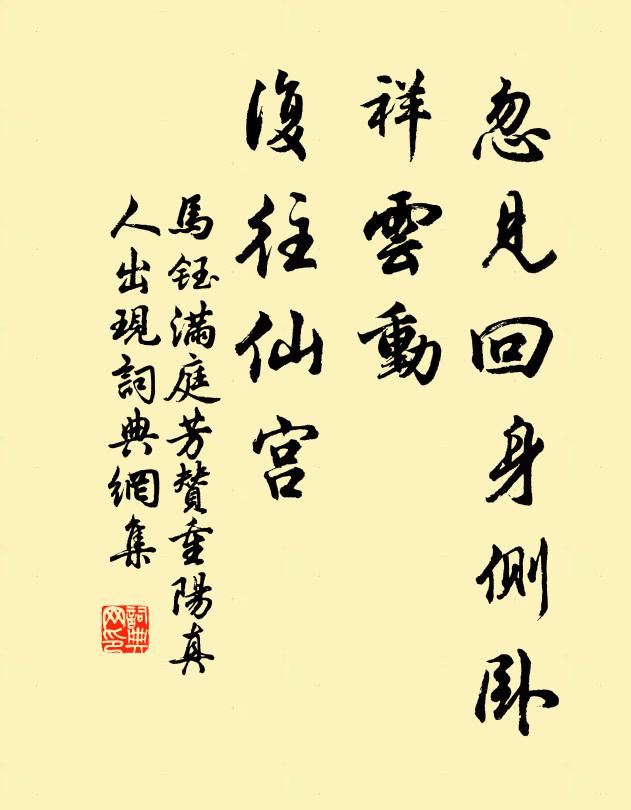 忽見回身側卧
祥雲動
復往仙宫
馬鈺滿庭芳贊重陽真
人出現詞典網集
詞典
网印